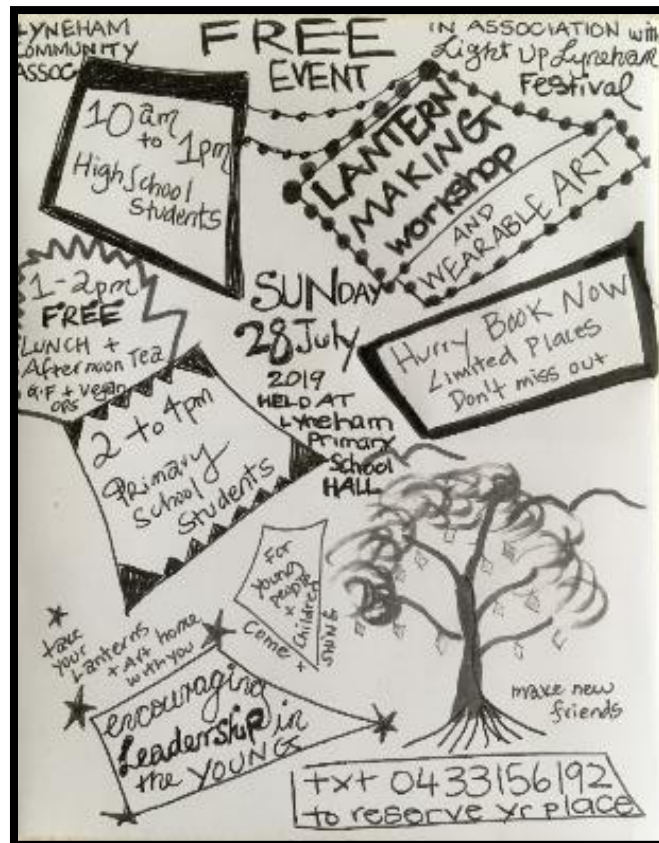 LYNEHAM
COMMUNITY
ASSOC
FREE
EVENT
IN ASSOCIATION with
Light Up Lyneham
Festival
10am
to 1pm
High School
Students
LANTERN
MAKING
workshop
AND
WEARABLE ART
1-2pm
FREE
LUNCH +
Afternoon Tea
G.F + Vegan
OPS
SUNDAY
28 July
2019
HELD AT
Lyneham
Primary
School
HALL
Hurry Book Now
Limited Places
Don't miss out
2 to 4pm
Primary
School
Students
For
young
people
+
Children
come +
SHINE
take
your
Lanterns
+ Art home
with you
encouraging
Leadership in
the YOUNG
make new
friends
txt 0433156192
to reserve yr place